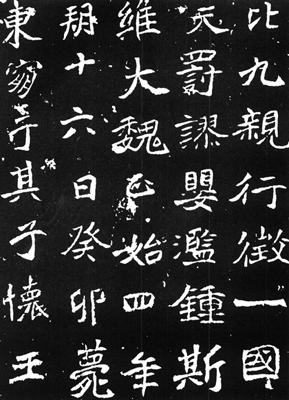 比九親行徵一國
天罰謬嬰濫鍾斯
維大魏正始四年
朔十六日癸卯薨
東窮于其子懷王